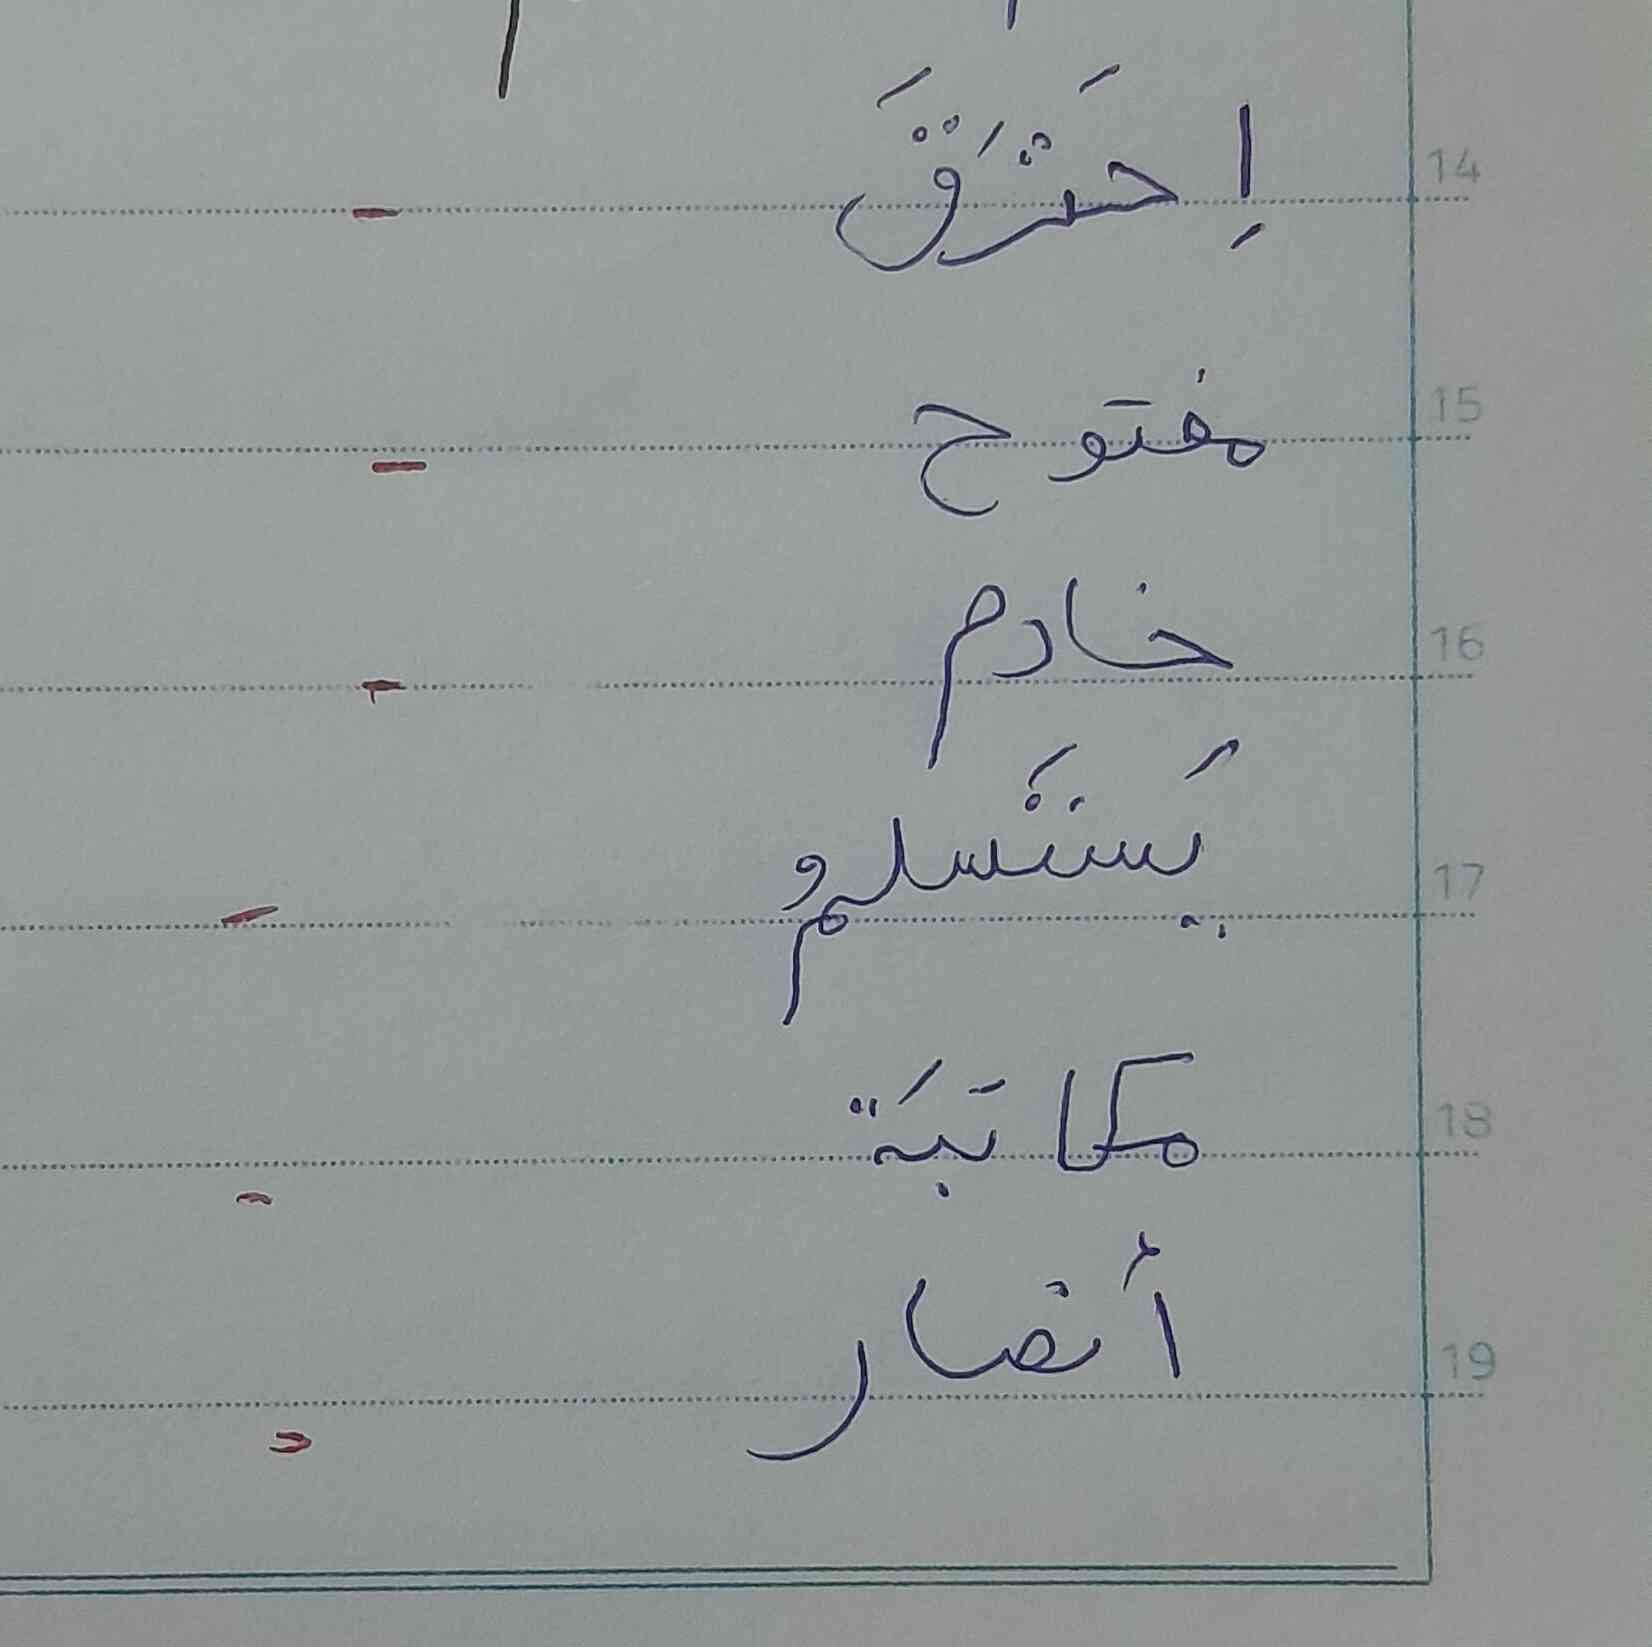 14 اِحَتَرَقَ
15 مفتوح
16 خادم
17 يَستَسلمُ
18 مكاتبَة
19 أنصار